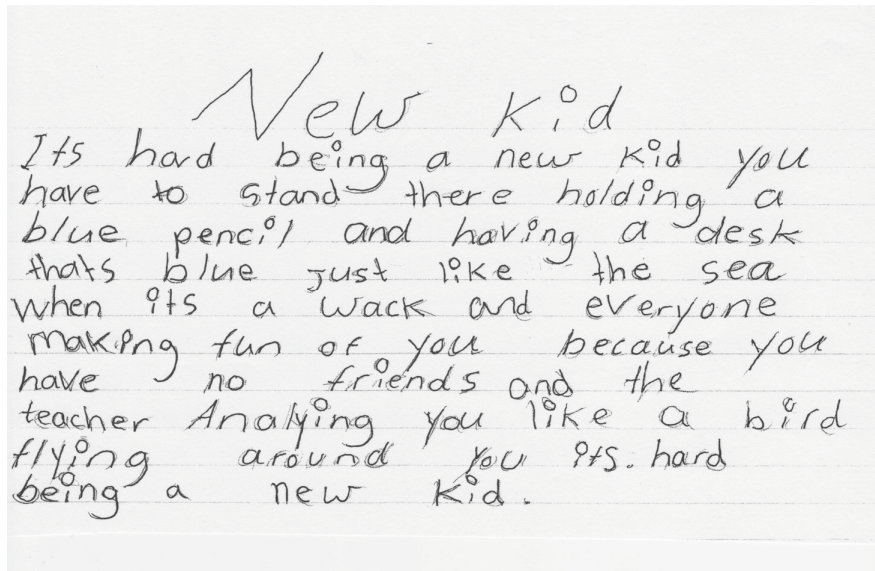 New kid
Its hard being a new kid you
have to stand there holding a
blue pencil and having a desk
thats blue just like the sea
when its a wack and everyone
making fun of you because you
have no friends and the
teacher Analying you like a bird
flying around you its. hard
being a new kid.